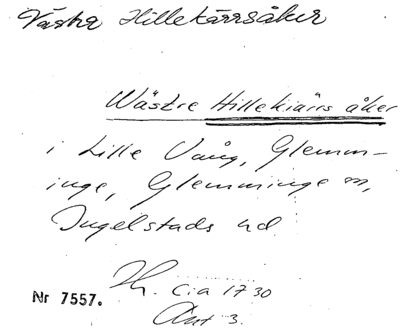 Västra Hillekärrsåker
Wästre Hillekiärrs åker
i Lille Vång, Glemm-
inge, Glemminge sn,
Ingelstads hd
Th. c:a 1730
Akt 3.
Nr 7557.